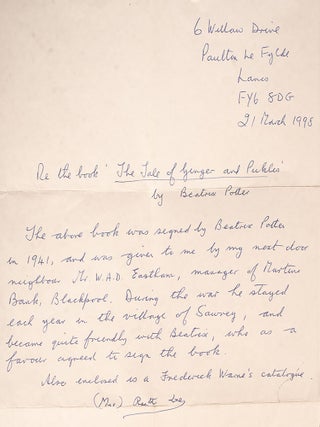 6 Willow Drive
Poulton Le Fylde
Lancs
FY6 8DG
21 March 1998
Re the book 'The Tale of Ginger and Pickles'
by Beatrix Potter
The above book was signed by Beatrix Potter
in 1941, and was given to me by my next-door
neighbour Mr W.A.D. Eastham, manager of Martins
Bank, Blackpool. During the war he stayed
each year in the village of Sawrey, and
became quite friendly with Beatrix, who as a
favour agreed to sign the book.
Also enclosed is a Frederick Warne's catalogue.
(Mrs.) Ruth